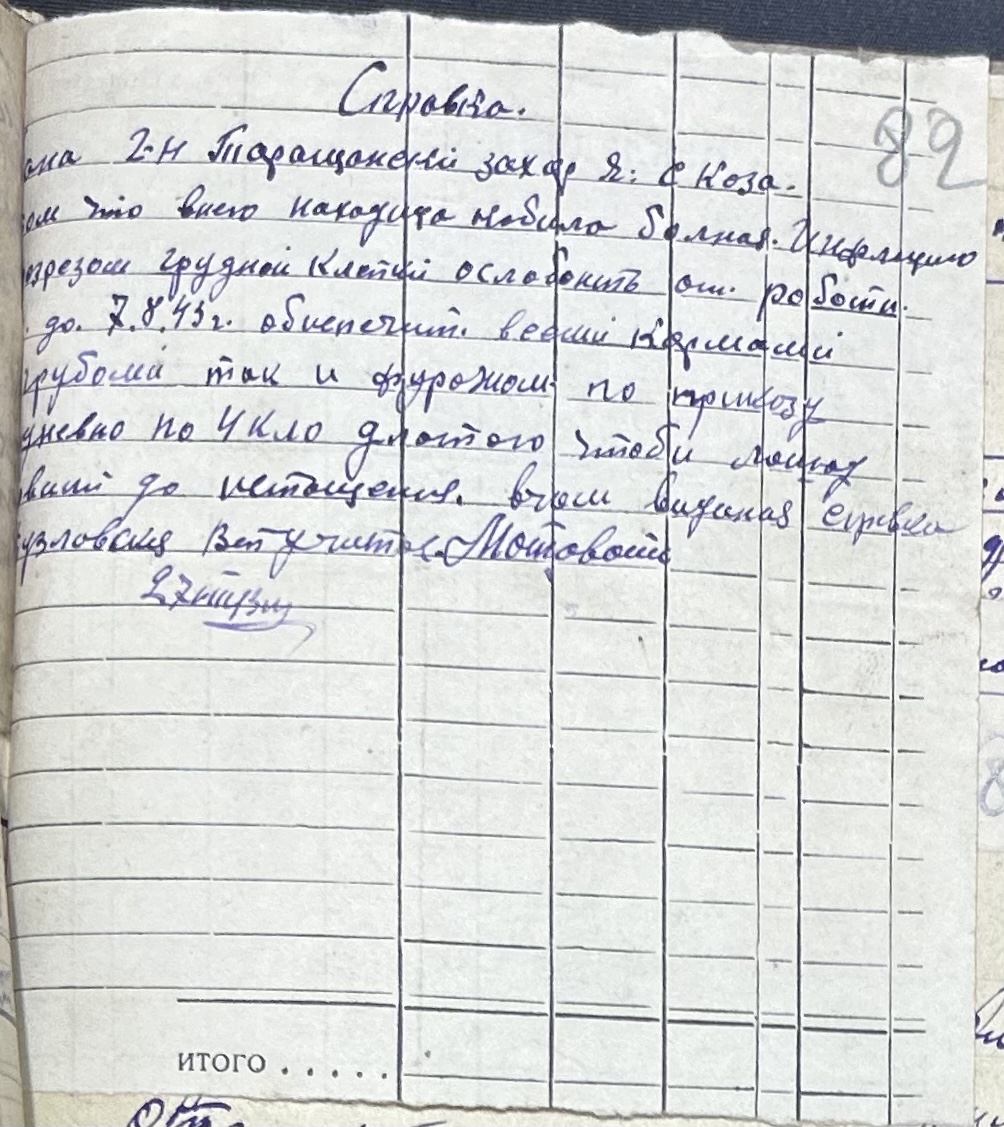 Справка.
82
ана 2-н Таращанский захар Я: с Коза.
ом что внего находица кобила болная.
озрезом грудной клетки ослобонить от. работи.
до. 7.8.43г. обиспечит. всеми кормами
грубоми так и фуражом по приказу
дневно по 4 кло длятого чтоби лошад
до истощения. вчом виданая справка
узловская Вет
27
ИТОГО . . . . .